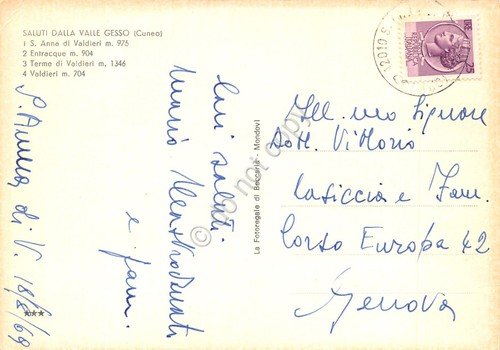 SALUTI DALLA VALLE GESSO (Cuneo)
1 S. Anna di Valdieri m. 975
2 Entracque m. 904
3 Terme di Valdieri m. 1346
4 Valdieri m. 704
S. Anna di V. 18/8/69
Cari saluti
Mario
e fam.
La Fotoregale di Beccaria - Mondovì
Ill.mo Signore
Dott. Vittorio
Casiccia e Fam.
Corso Europa 42
Genova
12010 S.
do not copy
***